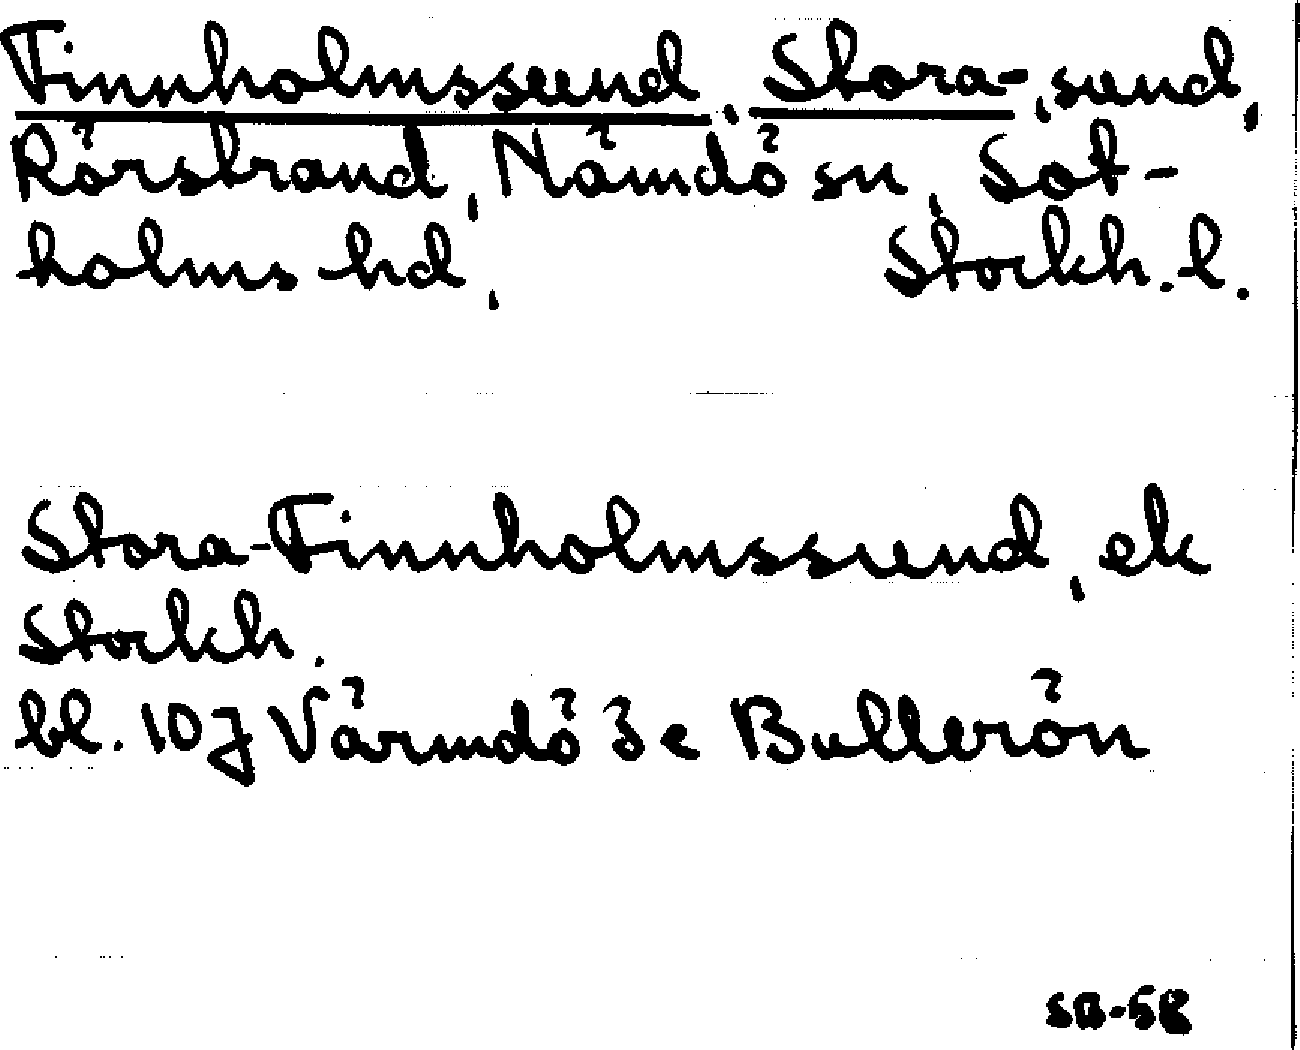 Finnholmssund, Stora-, sund,
Rörstrand, Nämdö sn, Sot-
holms hd, Stockh. l.
Stora-Finnholmssund, ek
Stockh.
bl. 10J Värmdö 3e Bullerön
SB-58